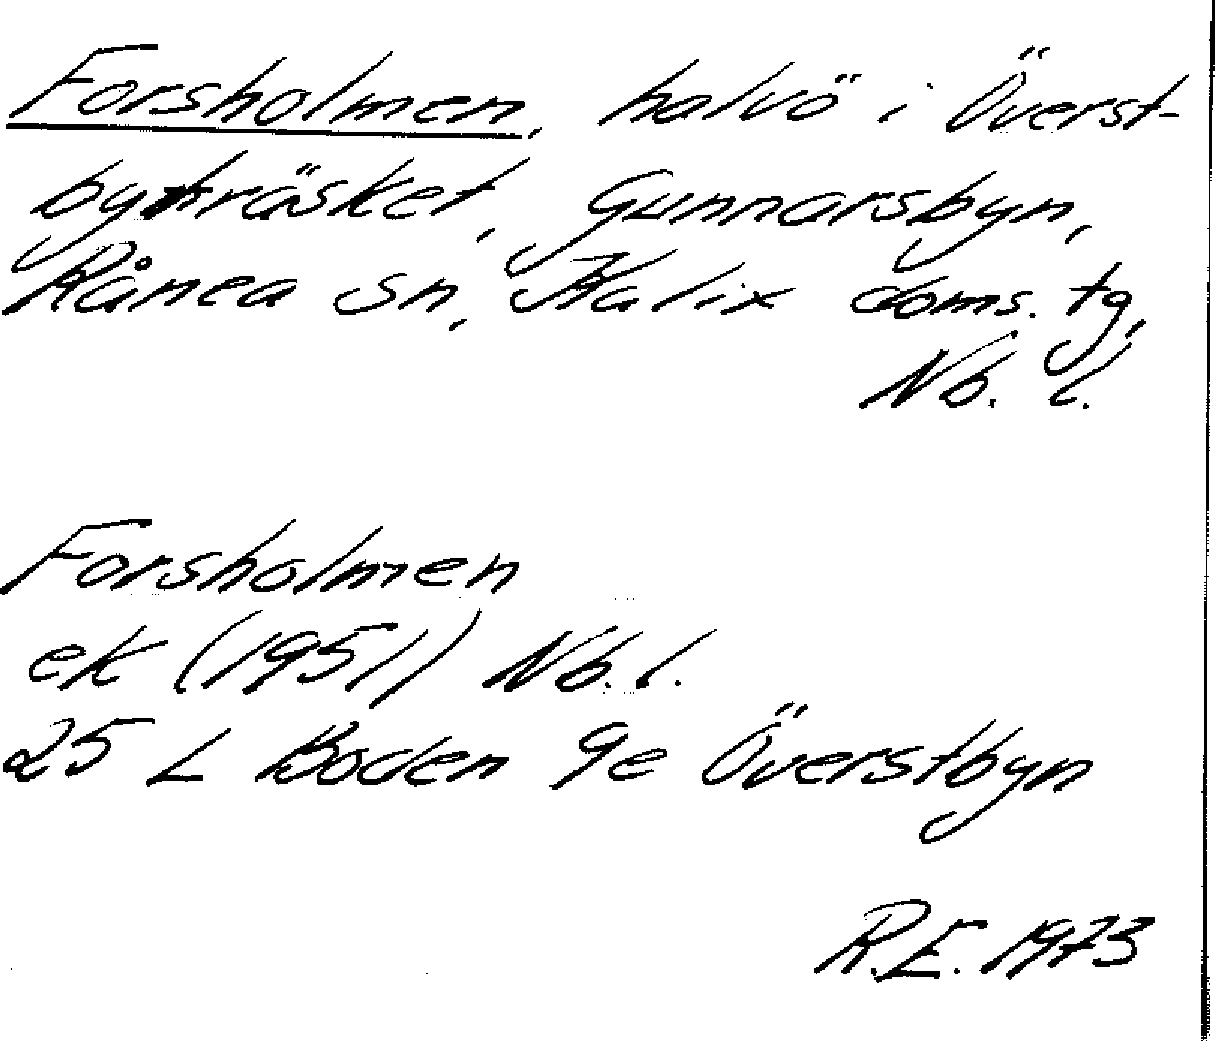 Forsholmen, halvö i Överst-
byträsket, Gunnarsbyn,
Rånea sn, Kalix doms. tg,
Nb. l.
Forsholmen
ek (1951) Nb. l.
25 L Boden 9e Överstbyn
R.E. 1973